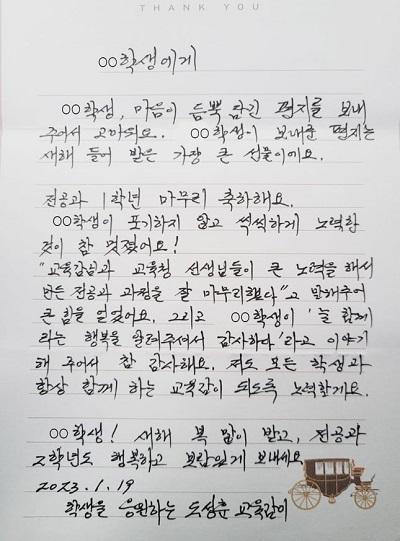 THANK YOU
○○학생에게
○○학생, 마음이 듬뿍 담긴 편지를 보내
주어서 고마워요. ○○학생이 보내준 편지는
새해 들어 받은 가장 큰 선물이에요.
전공과 1학년 마무리 축하해요.
○○학생이 포기하지 않고 씩씩하게 노력한
것이 참 멋졌어요!
"교육감님과 교육청 선생님들이 큰 노력을 해서
만든 전공과 과정을 잘 마무리했다"고 말해주어
큰 힘을 얻었어요. 그리고 ○○학생이 '늘 함께
라는 행복을 알려주셔서 감사하다'라고 이야기
해 주어서 참 감사해요. 저도 모든 학생과
항상 함께 하는 교육감이 되도록 노력할게요.
○○학생! 새해 복 많이 받고, 전공과
2학년도 행복하고 보람있게 보내세요
2023. 1. 19
학생을 응원하는 도성훈 교육감이